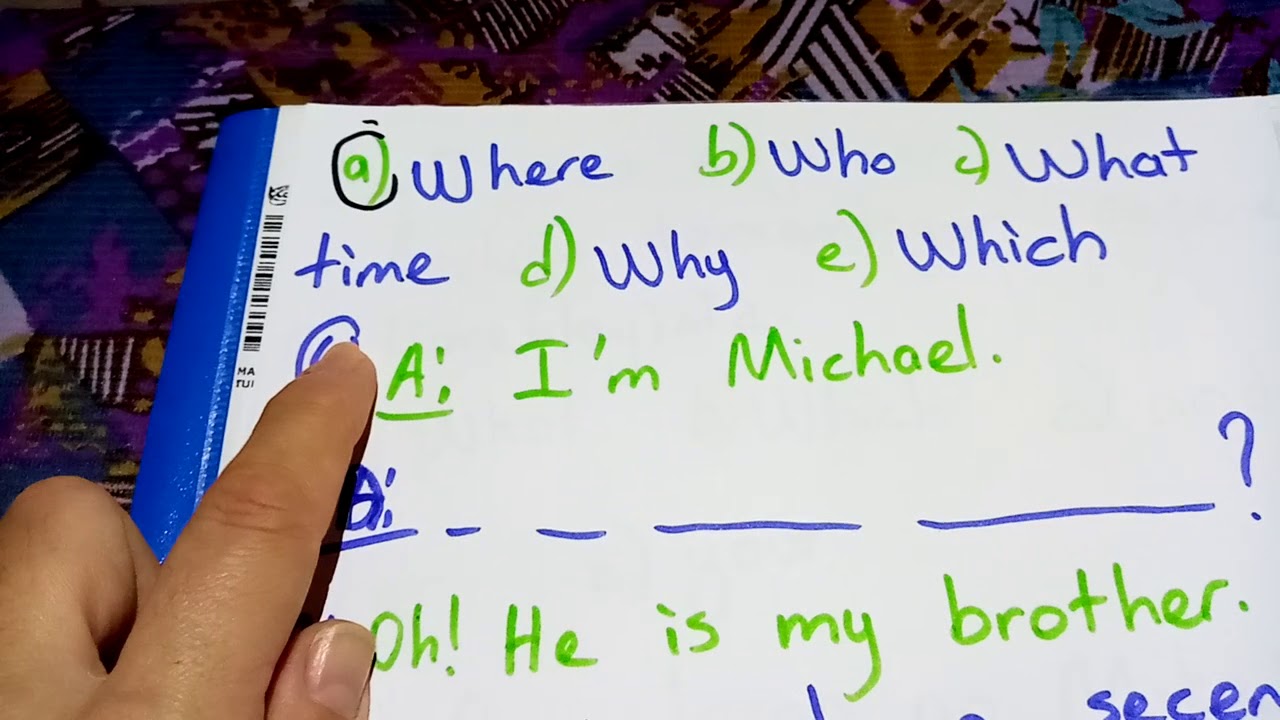 a) Where b) Who c) What
time d) Why e) Which
A: I'm Michael.
?
Oh! He is my brother.